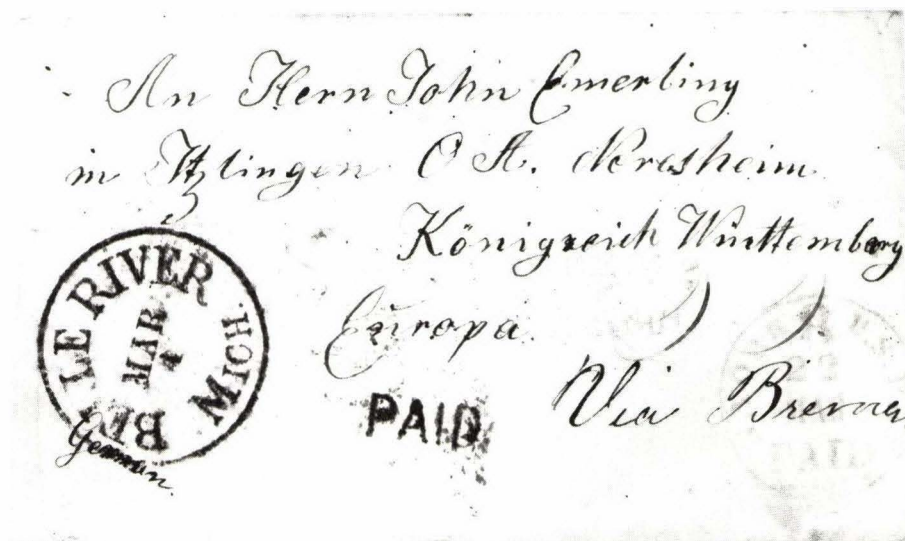 An Herrn John Emerling
in Itzlingen O A. Neresheim
Königreich Württemberg
Europa.
Via Breme
BELLE RIVER MICH
MAR 4
PAID
German.